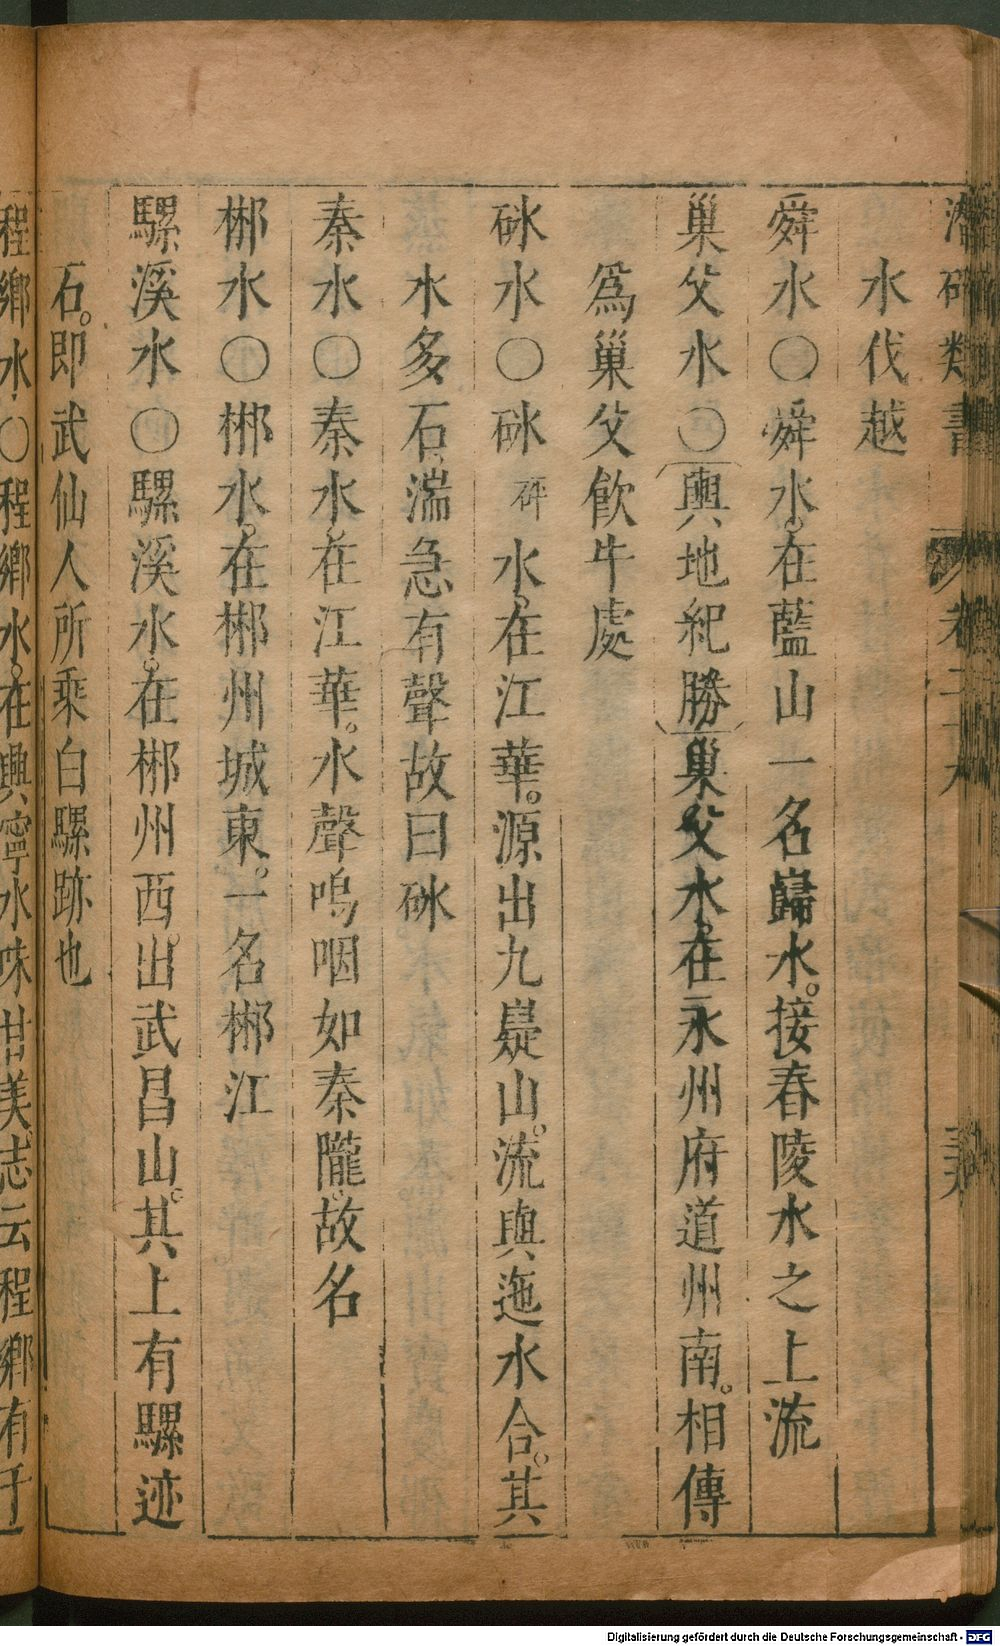 潛確類書 卷三十九
水伐越
舜水〇舜水在藍山一名巋水接舂陵水之上流
巢父水〇輿地紀勝巢父水在永州府道州南相傳
爲巢父飲牛處
砅水〇砅砰水在江華源出九嶷山流與迤水合其
水多石湍急有聲故曰砅
秦水〇秦水在江華水聲嗚咽如秦隴故名
郴水〇郴水在郴州城東一名郴江
騾溪水〇騾溪水在郴州西出武昌山其上有騾迹
石即武仙人所乘白騾跡也
程鄉水〇程鄉水在興寧水味甘美志云程鄉有千
Digitalisierung gefördert durch die Deutsche Forschungsgemeinschaft - DFG